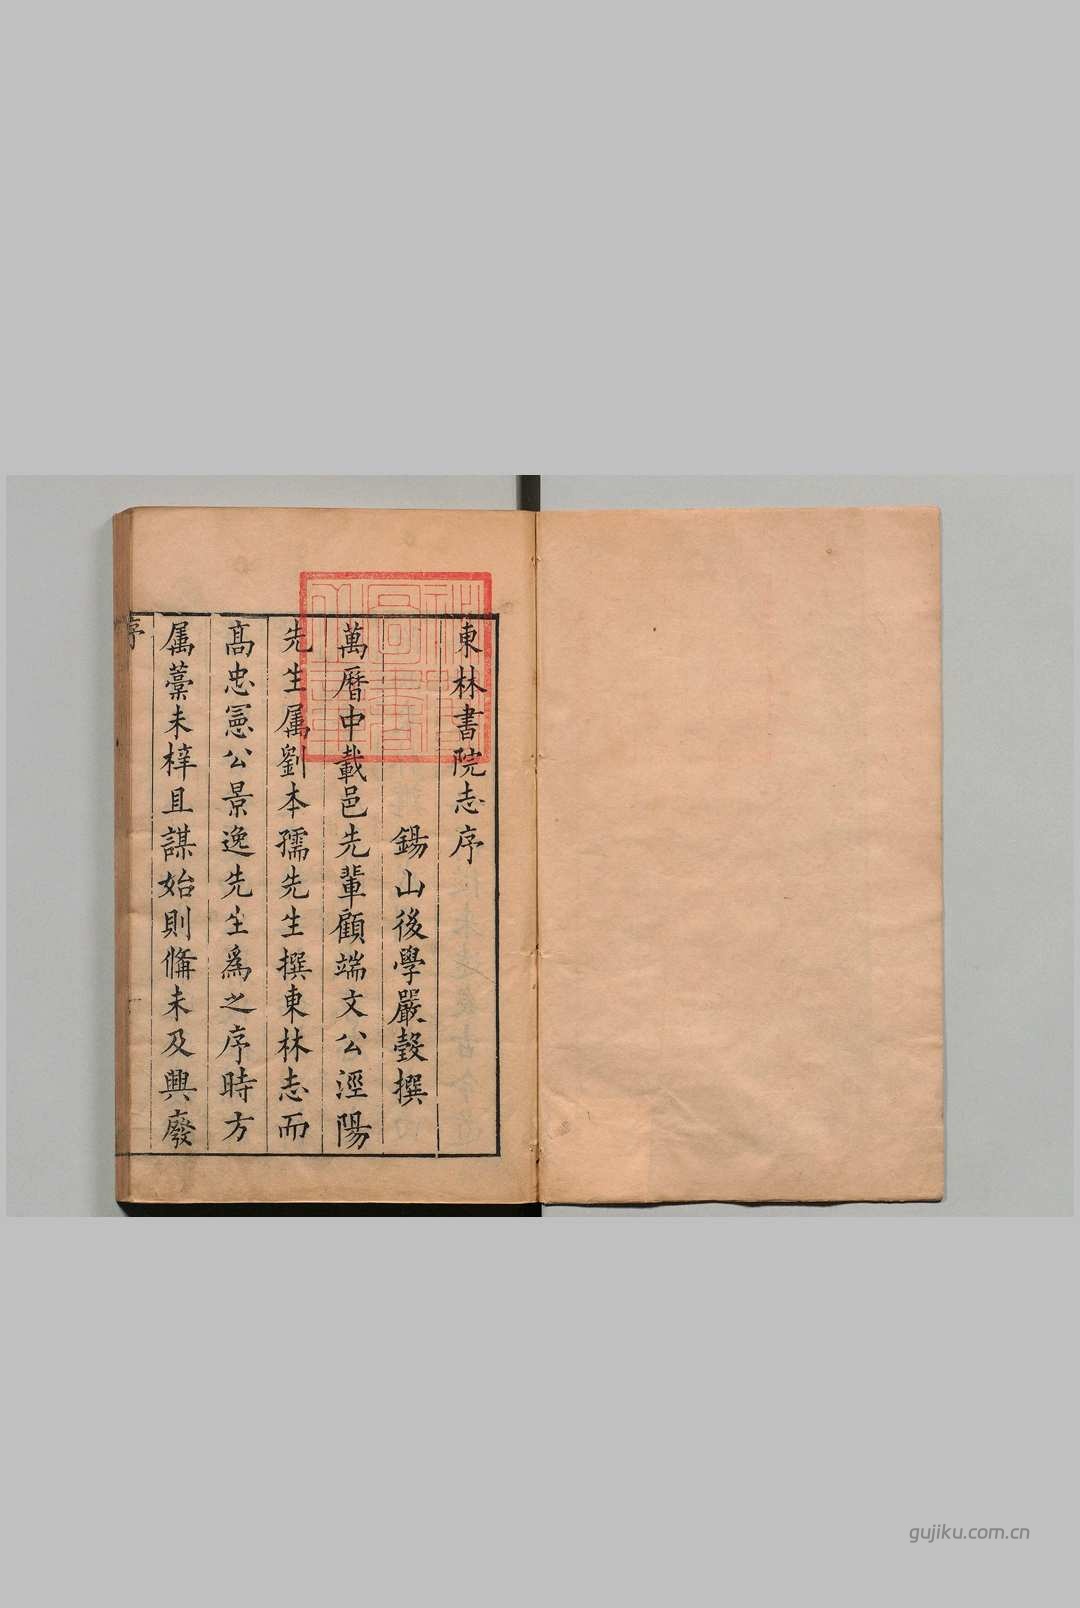 東林書院志序
錫山後學嚴瑴撰
萬曆中載邑先輩顧端文公涇陽
先生属劉本孺先生撰東林志而
高忠憲公景逸先生爲之序時方
属藳未梓且謀始則僃未及興廢
序
gujiku.com.cn